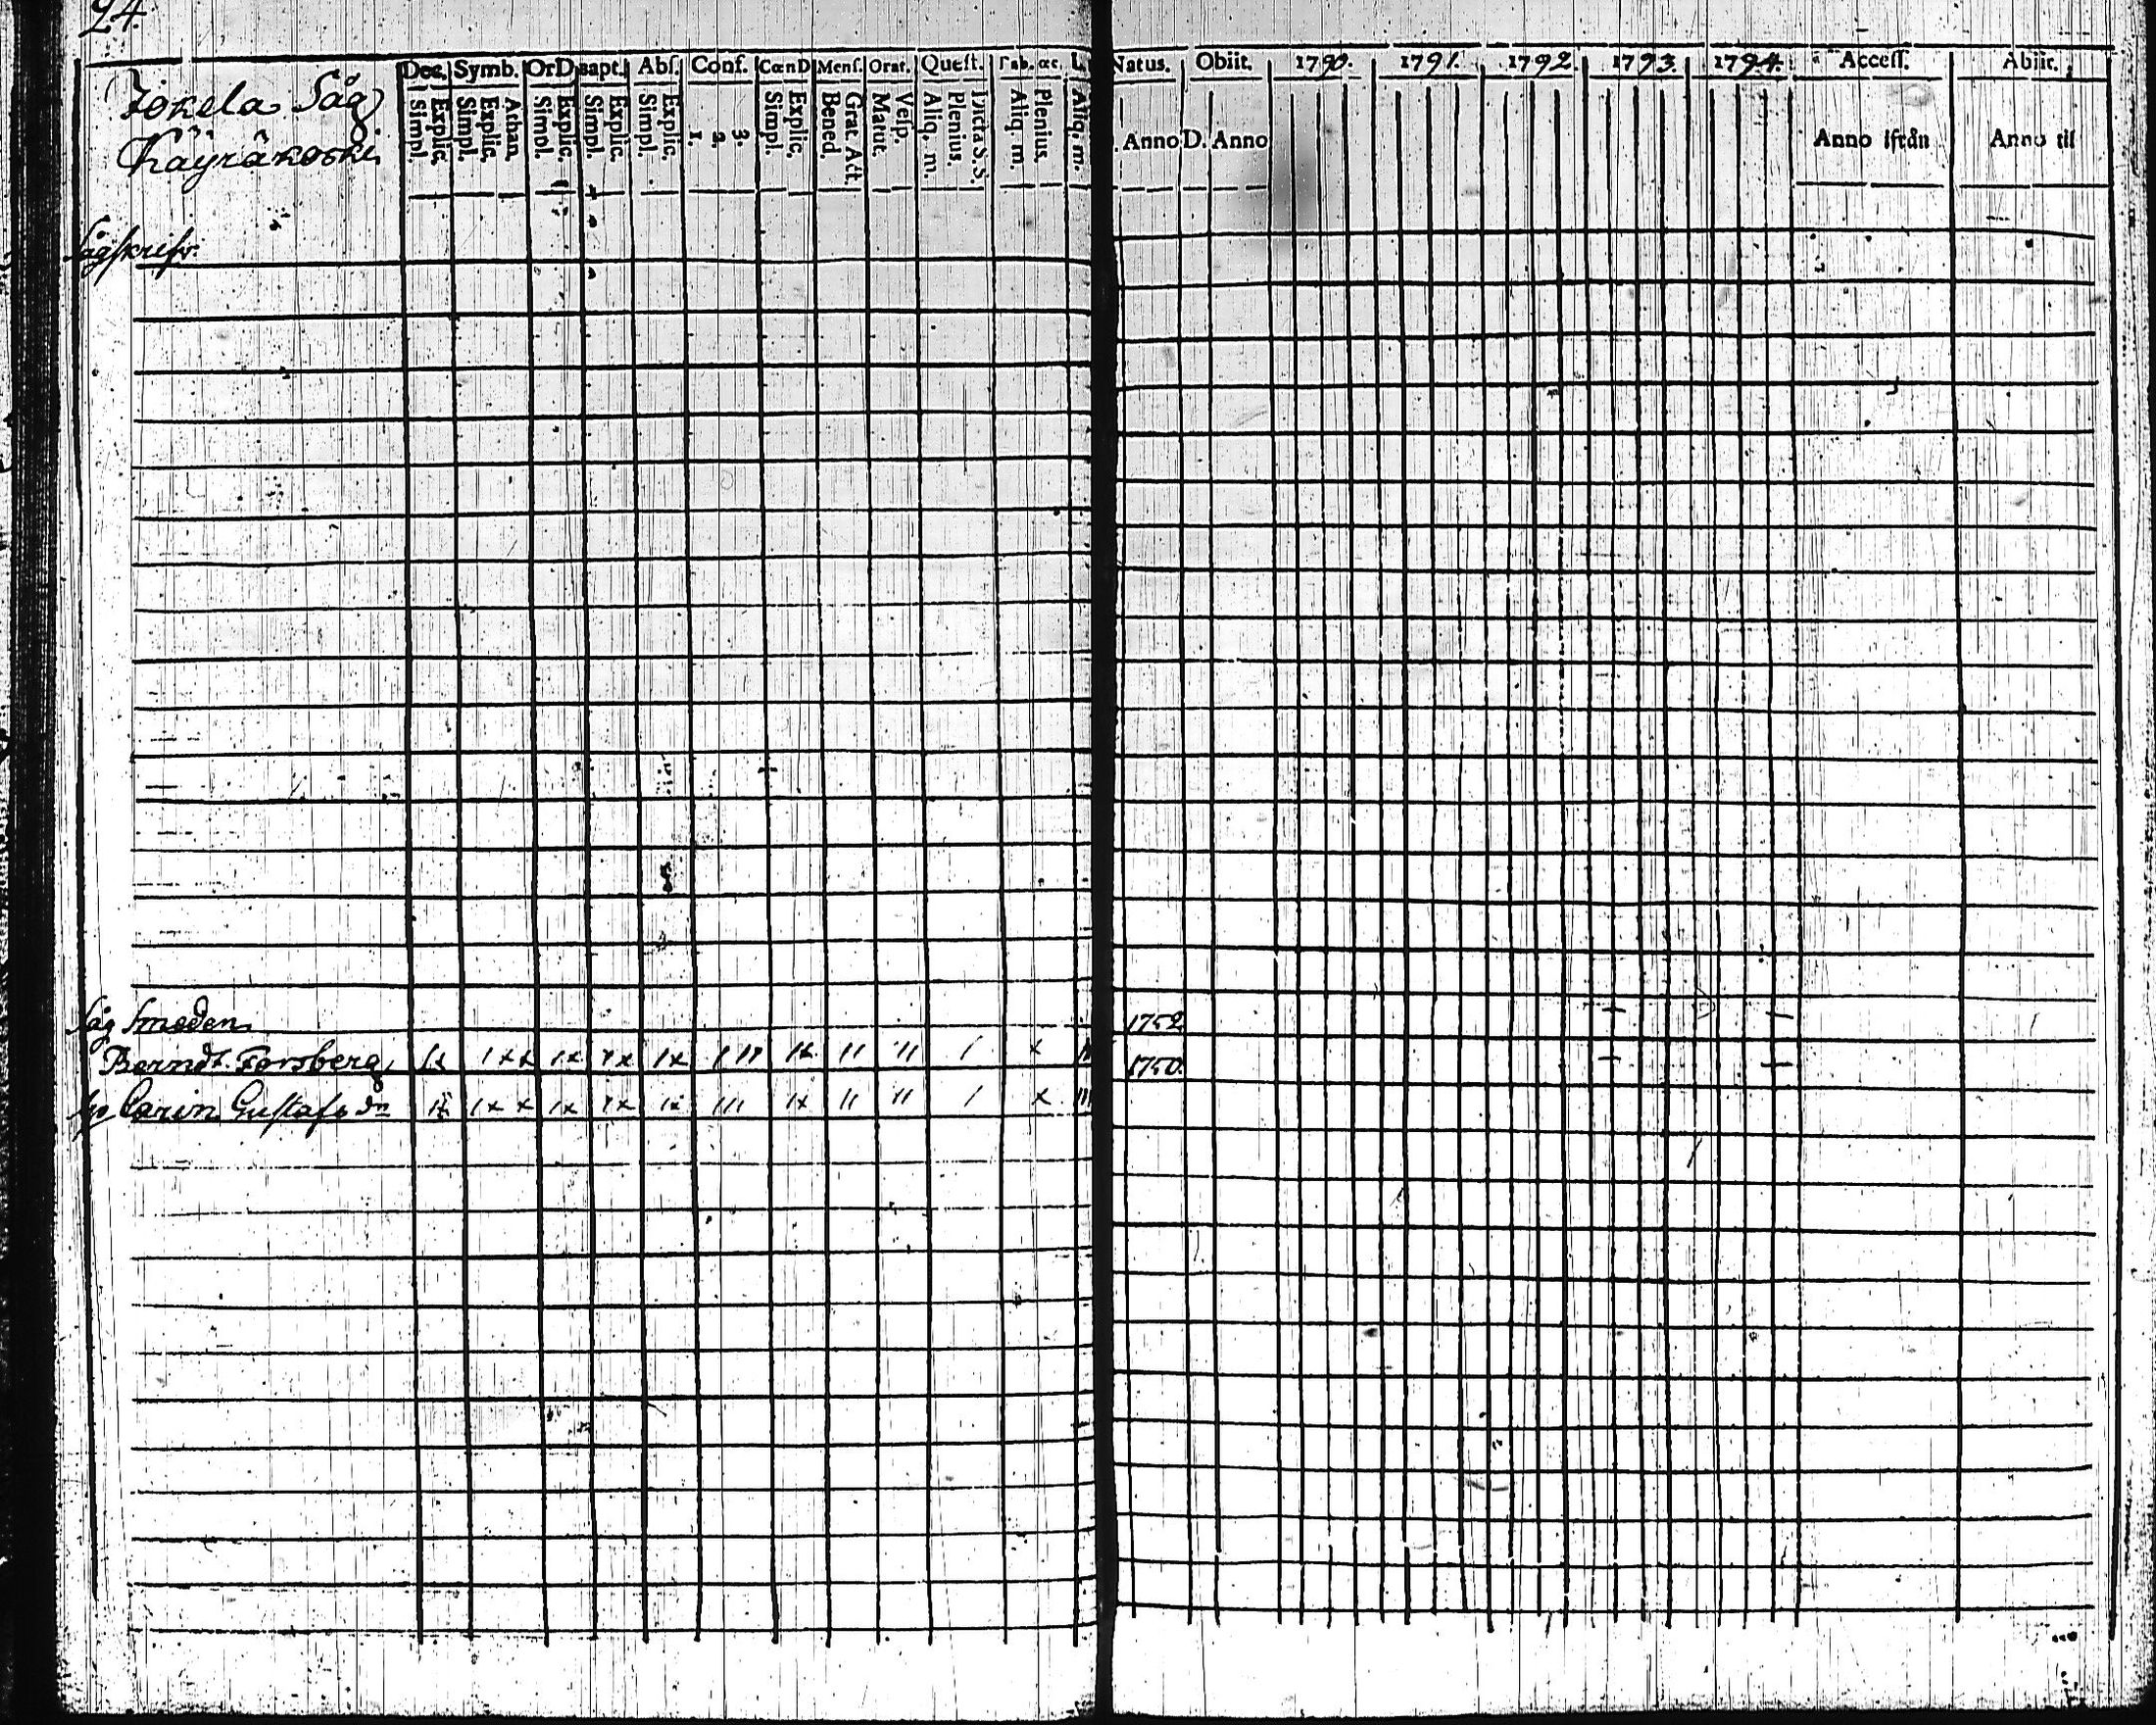 24.
Jokela Såg
Käyräkoski
Dec. Symb. OrD Bapt. Abſ. Conf. CœnD Menſ. Orat. Quæſt. Tab. œc. L. Natus. Obiit. 1790. 1791. 1792. 1793. 1794. Acceſſ. Abiit.
Simpl. Explic. Simpl. Explic. Athan. Simpl. Explic. Simpl. Explic. Simpl. Explic. 1. 2. 3. Simpl. Explic. Bened. Grat. Act. Matut. Veſp. Aliq. m. Plenius. Dicta S.S. Aliq. m. Plenius. Aliq. m. Anno D. Anno Anno ifrån Anno til
Sågſkrifv.
Såg Smeden 1752
Berndt Forsberg 1x 1xx 1x 1x 1x 111 1x 11 11 1 x 1750.
Carin Gustafsdr 1x 1xx 1x 1x 1x 111 1x 11 11 1 x 111